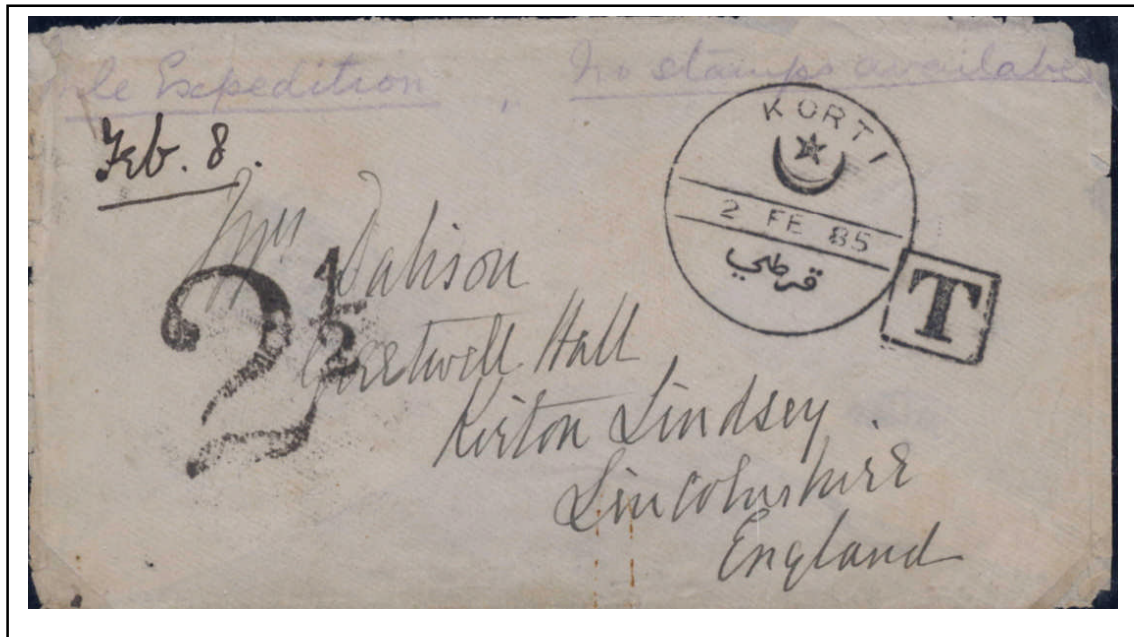 Nile Expedition, No stamps available
Feb. 8.
KORTI
2 FE 85
قرطي
T
2 1/2
Mrs Dalison
Hall
Kirton Lindsey
Lincolnshire
England